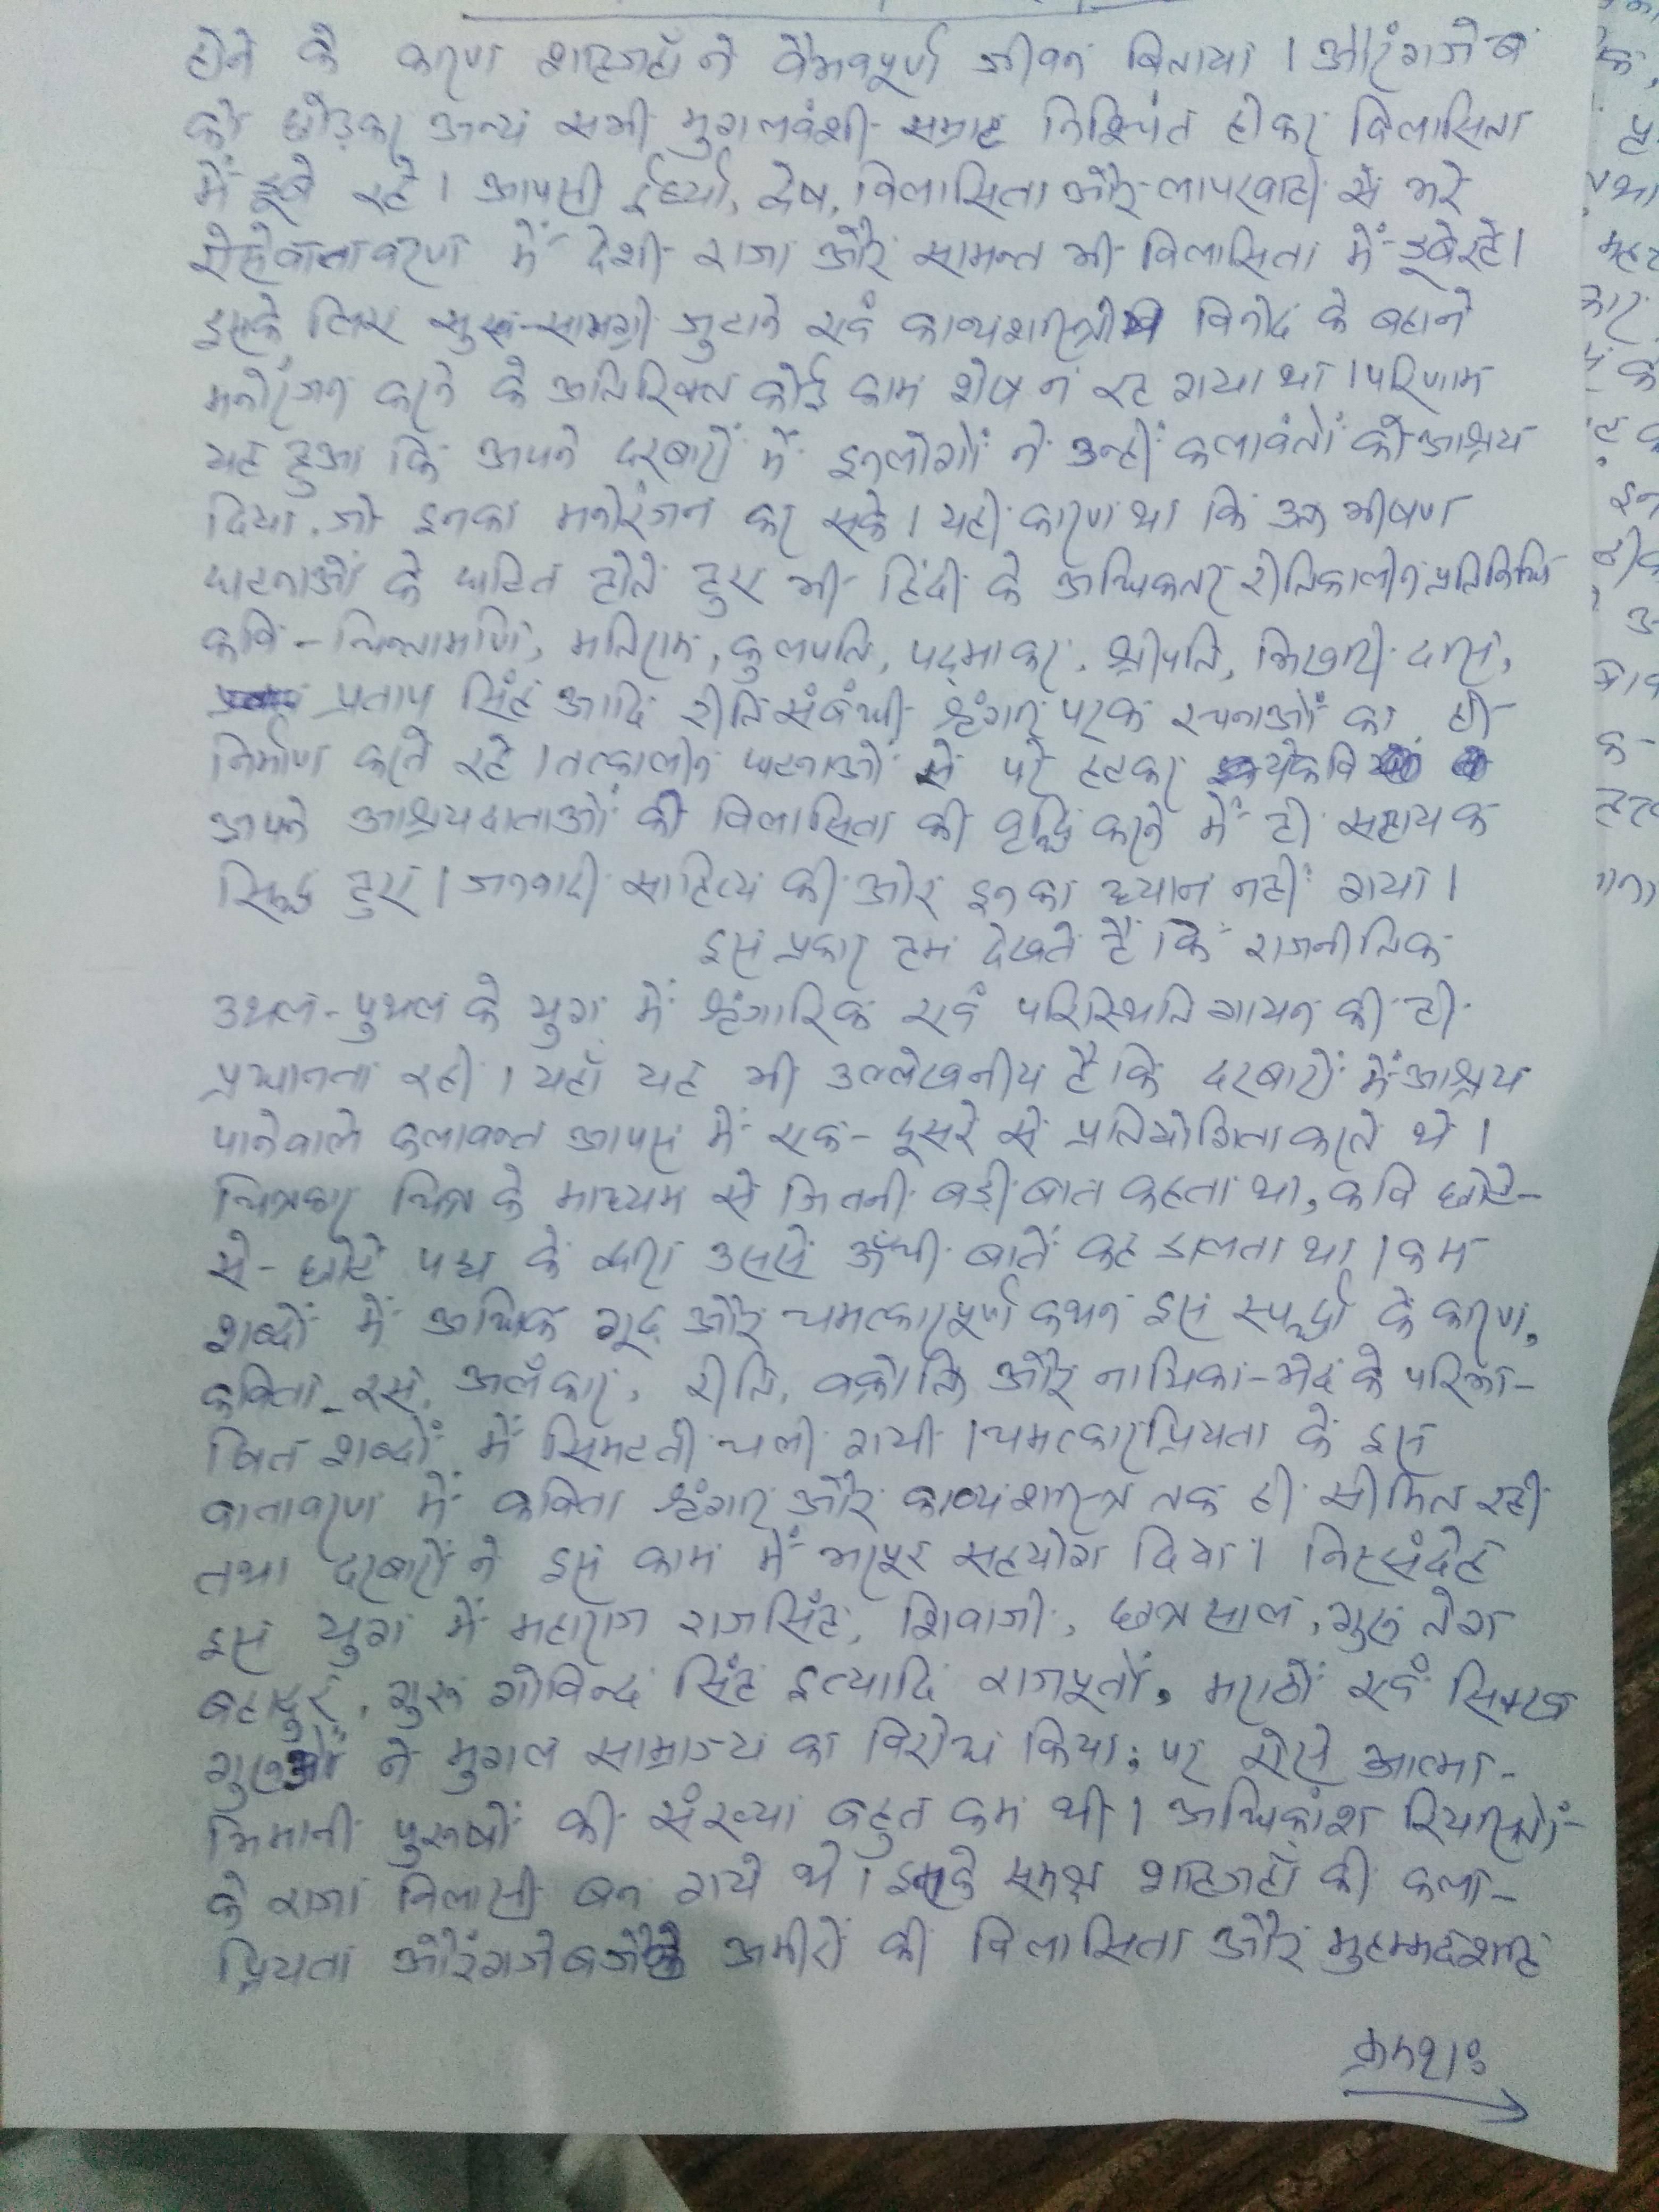 होने के कारण शाहजहाँ ने वैभवपूर्ण जीवन बिताया । औरंगजेब
को छोड़कर अन्य सभी मुगलवंशी सम्राट निश्चिंत होकर विलासिता
में डूबे रहे । आपसी ईर्ष्या, द्वेष, विलासिता और लापरवाही से भरे
ऐसे वातावरण में देशी राजा और सामन्त भी विलासिता में डूबे रहे ।
इसके लिए सुख-सामग्री जुटाने एवं काव्यशास्त्रीय विनोद के बहाने
मनोरंजन करने के अतिरिक्त कोई काम शेष न रह गया था । परिणाम
यह हुआ कि अपने दरबारों में इनलोगों ने उन्हीं कलावंतों को आश्रय
दिया, जो इनका मनोरंजन कर सके । यही कारण था कि उक्त भीषण
घटनाओं के घटित होते हुए भी हिंदी के अधिकतर रीतिकालीन प्रतिनिधि
कवि - चिन्तामणि, मतिराम, कुलपति, पद्माकर, श्रीपति, भिखारी दास,
प्रताप सिंह आदि रीति संबंधी श्रृंगार परक रचनाओं का ही
निर्माण करते रहे । तत्कालीन घटनाओं से परे हटकर ये कवि
अपने आश्रयदाताओं की विलासिता की वृद्धि करने में ही सहायक
सिद्ध हुए । जनवादी साहित्य की ओर इनका ध्यान नहीं गया ।
इस प्रकार हम देखते हैं कि राजनीतिक
उथल-पुथल के युग में श्रृंगारिक एवं परिस्थिति गायन की ही
प्रधानता रही । यहाँ यह भी उल्लेखनीय है कि दरबारों में आश्रय
पानेवाले कलावन्त आपस में एक-दूसरे से प्रतियोगिता करते थे ।
चित्रकार चित्र के माध्यम से जितनी बड़ी बात कहता था, कवि छोटे-
से-छोटे पद्य के द्वारा उससे ऊँची बातें कह डालता था । कम
शब्दों में अधिक गूढ़ और चमत्कारपूर्ण कथन इस स्पर्द्धा के कारण,
कविता रस, अलंकार, रीति, वक्रोक्ति और नायिका-भेद के परिभा-
षित शब्दों में सिमटती चली गयी । चमत्कारप्रियता के इस
वातावरण में कविता श्रृंगार और काव्यशास्त्र तक ही सीमित रही
तथा दरबारों ने इस काम में भरपूर सहयोग दिया । निःसंदेह
इस युग में महाराज राजसिंह, शिवाजी, छत्रसाल, गुरु तेग
बहादुर, गुरु गोविन्द सिंह इत्यादि राजपूतों, मराठों एवं सिक्ख
गुरुओं ने मुगल साम्राज्य का विरोध किया; पर ऐसे आत्मा-
भिमानी पुरुषों की संख्या बहुत कम थी । अधिकांश रियासतों
के राजा विलासी बन गये थे । इनके समक्ष शाहजहाँ की कला-
प्रियता औरंगजेब के अमीरों की विलासिता और मुहम्मदशाह
क्रमशः